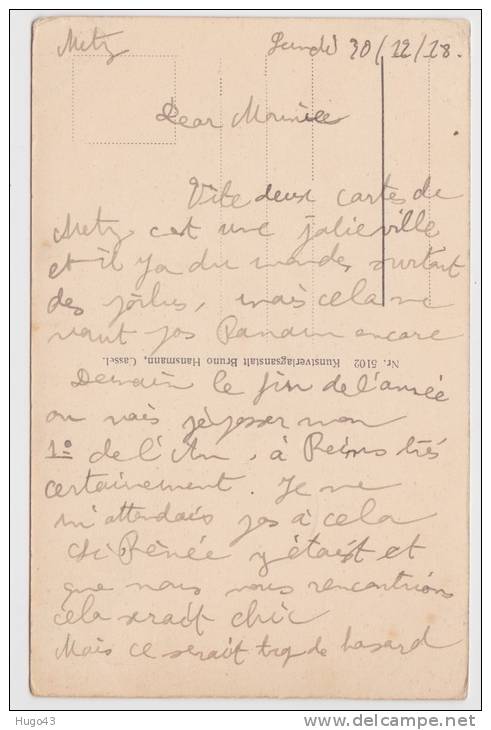 Metz Lundi 30/12/18.
Dear Mounice
Vite deux cartes de
Metz c'est une jolie ville
et il y a du monde, surtout
des poilus, mais cela ne
vaut pas encore
Nr. 5102 Kunstverlagsanstalt Bruno Hansmann, Cassel.
Demain le fin de l'année
ou vais je passer mon
1º de l'An, à Reims très
certainement. Je ne
m'attendais pas à cela
Si Rénée y était et
que nous nous rencontrions
cela serait chic
Mais ce serait trop de hasard
Hugo43